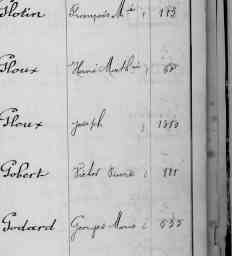 Flotin François M.ie ; 183
Floux Henri Math.
Floux Joseph ; 1880
Gobert Victor
Godard Georges Marie ; 535